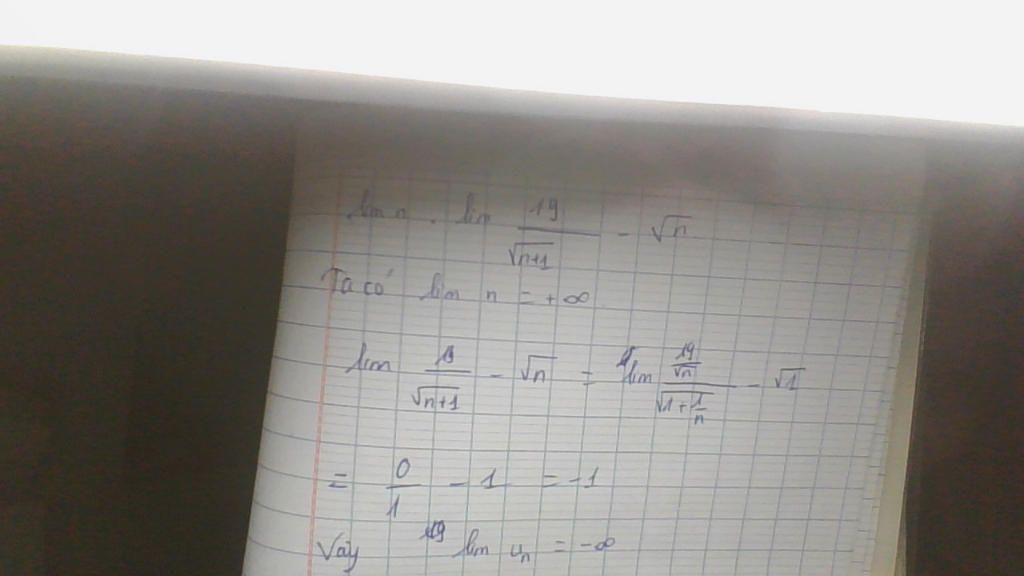 lim n . lim 19/√(n+1) - √n
Ta có lim n = +∞
lim 19/√(n+1) - √n = lim (19/√n)/√(1+1/n) - √1
= 0/1 - 1 = -1
Vậy lim uₙ = -∞